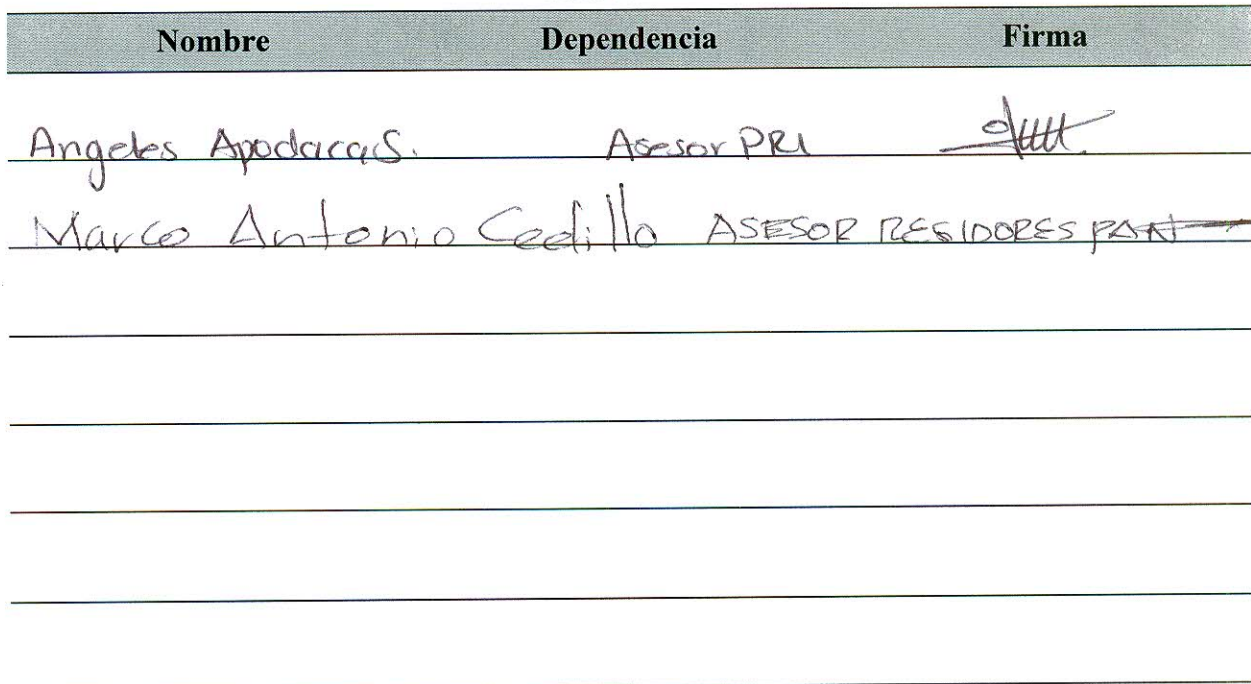 Nombre Dependencia Firma
Angeles Apodaca S. Asesor PRI
Marco Antonio Cedillo ASESOR REGIDORES PAN